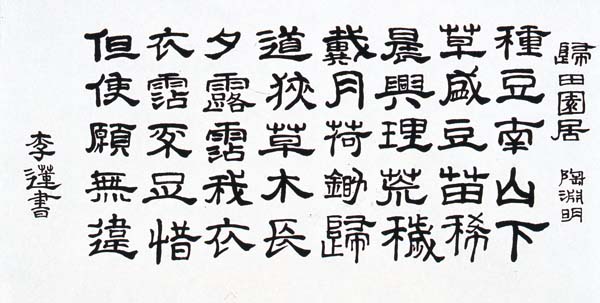 歸田園居 陶淵明
種豆南山下
草盛豆苗稀
晨興理荒穢
戴月荷鋤歸
道狹草木長
夕露霑我衣
衣霑不足惜
但使願無違
李蓮書